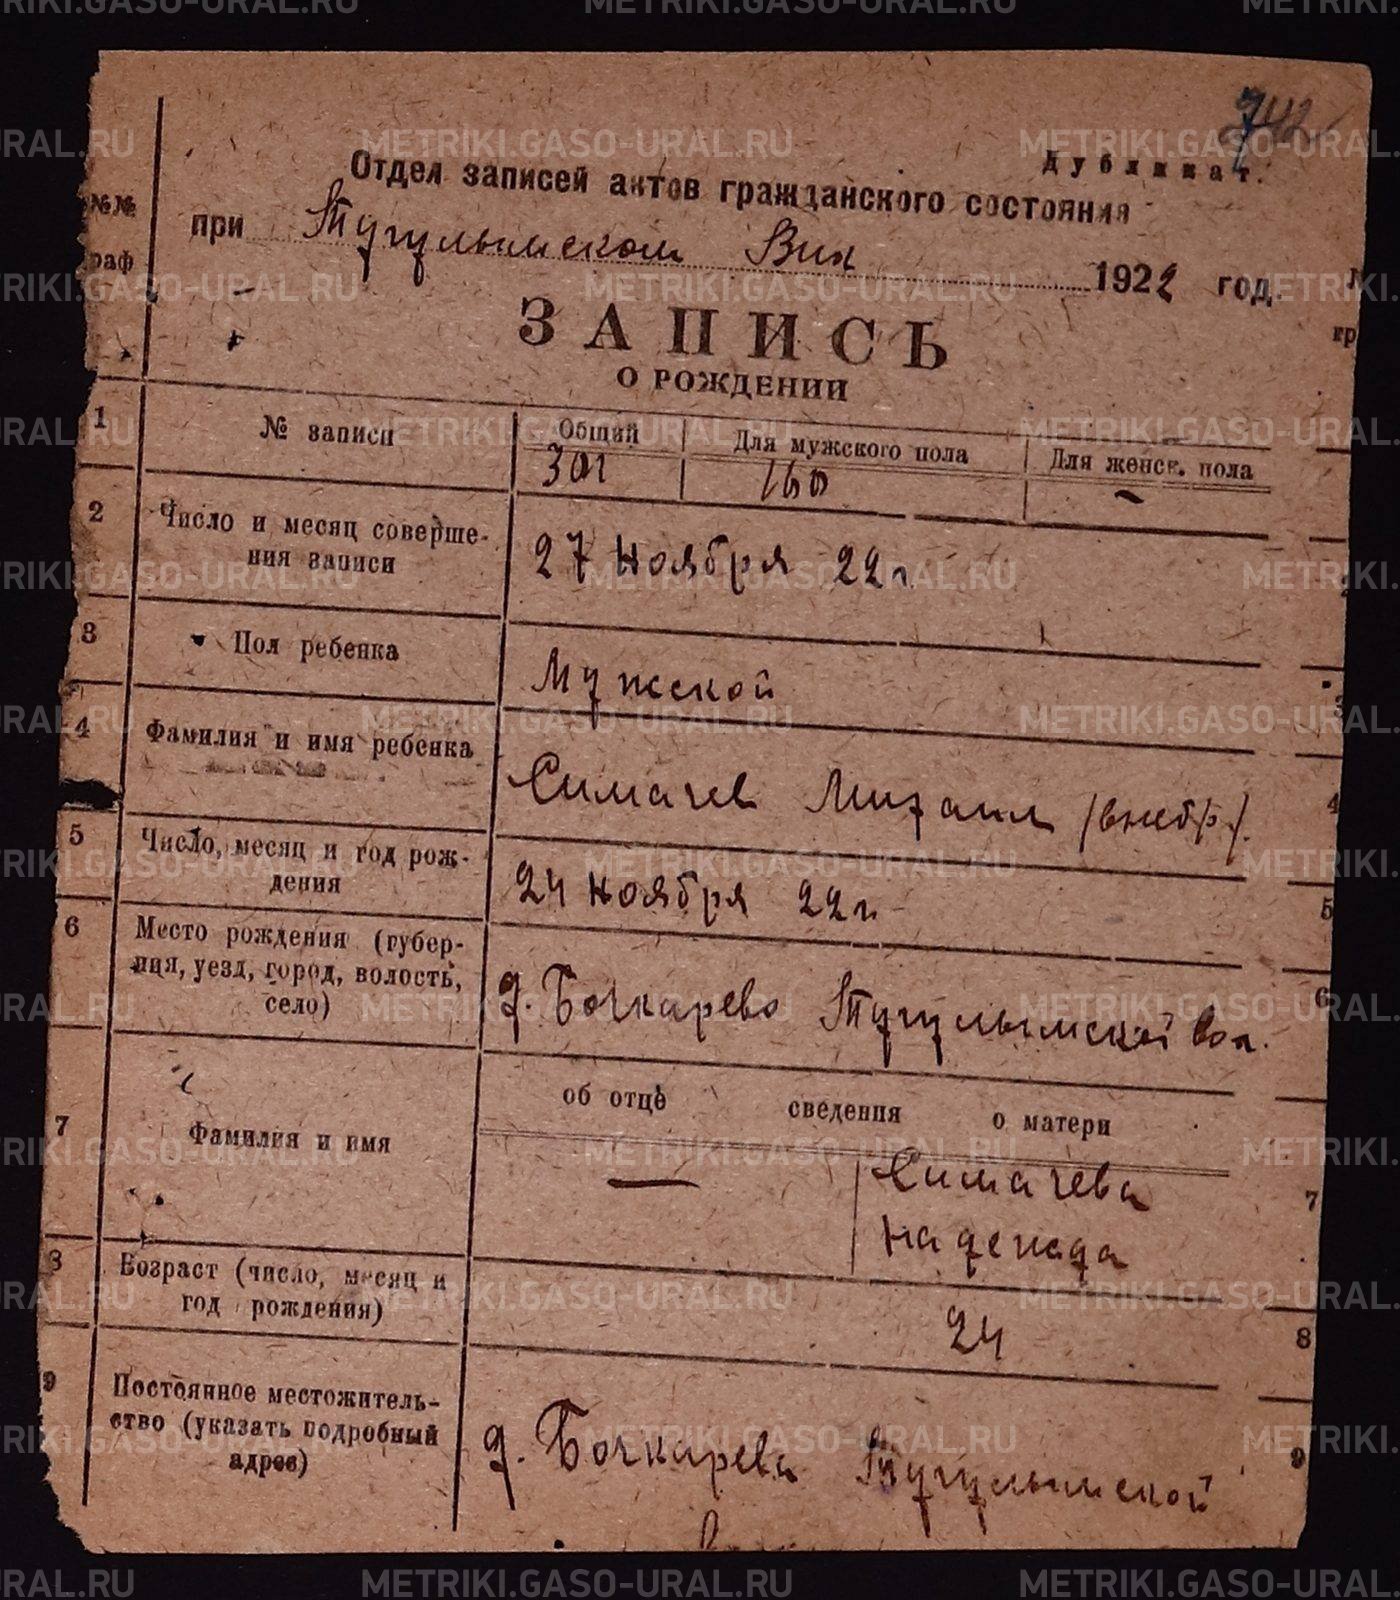 742
Дубликат.
Отдел записей актов гражданского состояния
при Тугулымском Вик 1922 год.
№№
граф
ЗАПИСЬ
О РОЖДЕНИИ
1 № записи Общий Для мужского пола Для женск. пола
301 160 —
2 Число и месяц соверше-
ния записи
27 Ноября 22 г
3 Пол ребенка
Мужской
4 Фамилия и имя ребенка
Симачев Михаил (внебр).
5 Число, месяц и год рож-
дения
24 Ноября 22 г.
6 Место рождения (губер-
ния, уезд, город, волость,
село)
д. Бочкарево Тугулымской вол.
об отце сведения о матери
7 Фамилия и имя
— Симачева
Надежда
8 Возраст (число, месяц и
год рождения)
24
9 Постоянное местожитель-
ство (указать подробный
адрес)
д. Бочкарева Тугулымской
METRIKI.GASO-URAL.RU